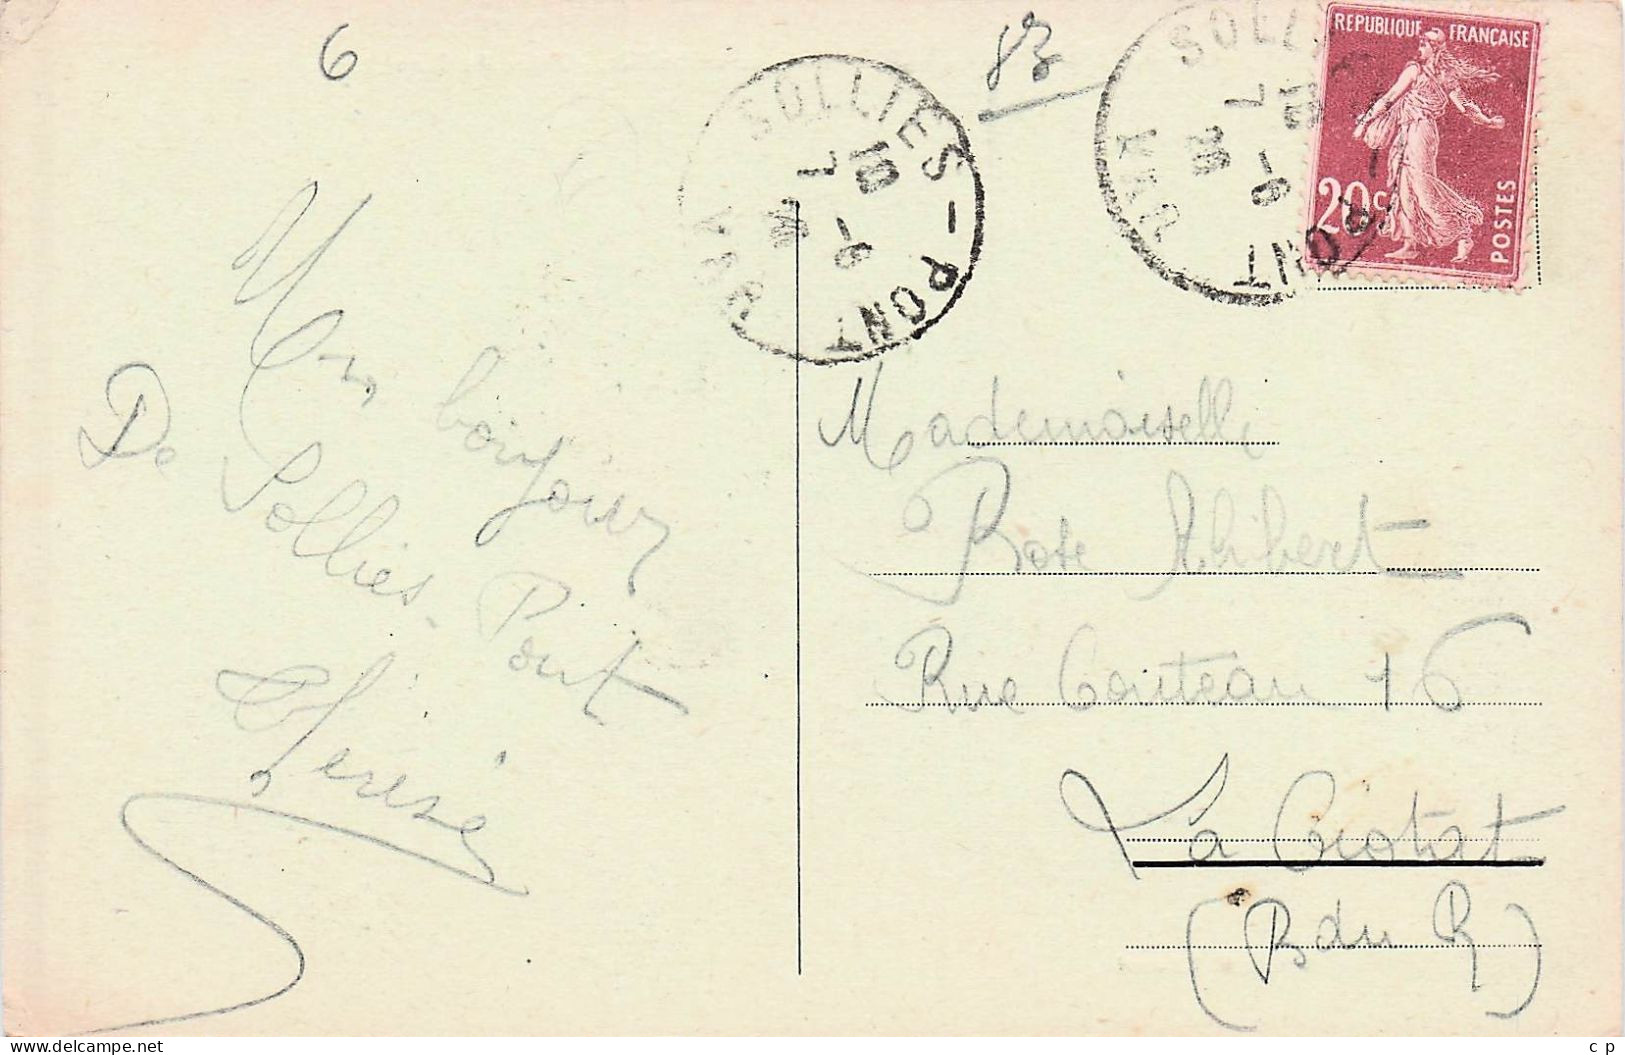 6
83
SOLLIES - PONT
10
7 - 6
VAR
SOLLIES - PONT
10
7 - 6
VAR
REPUBLIQUE FRANÇAISE
20c
POSTES
Un bonjour
De Sollies-Pont
Therese
Mademoiselle
Rose
Rue Couteau 16
La Ciotat
(B du R)
delcampe.net
c p